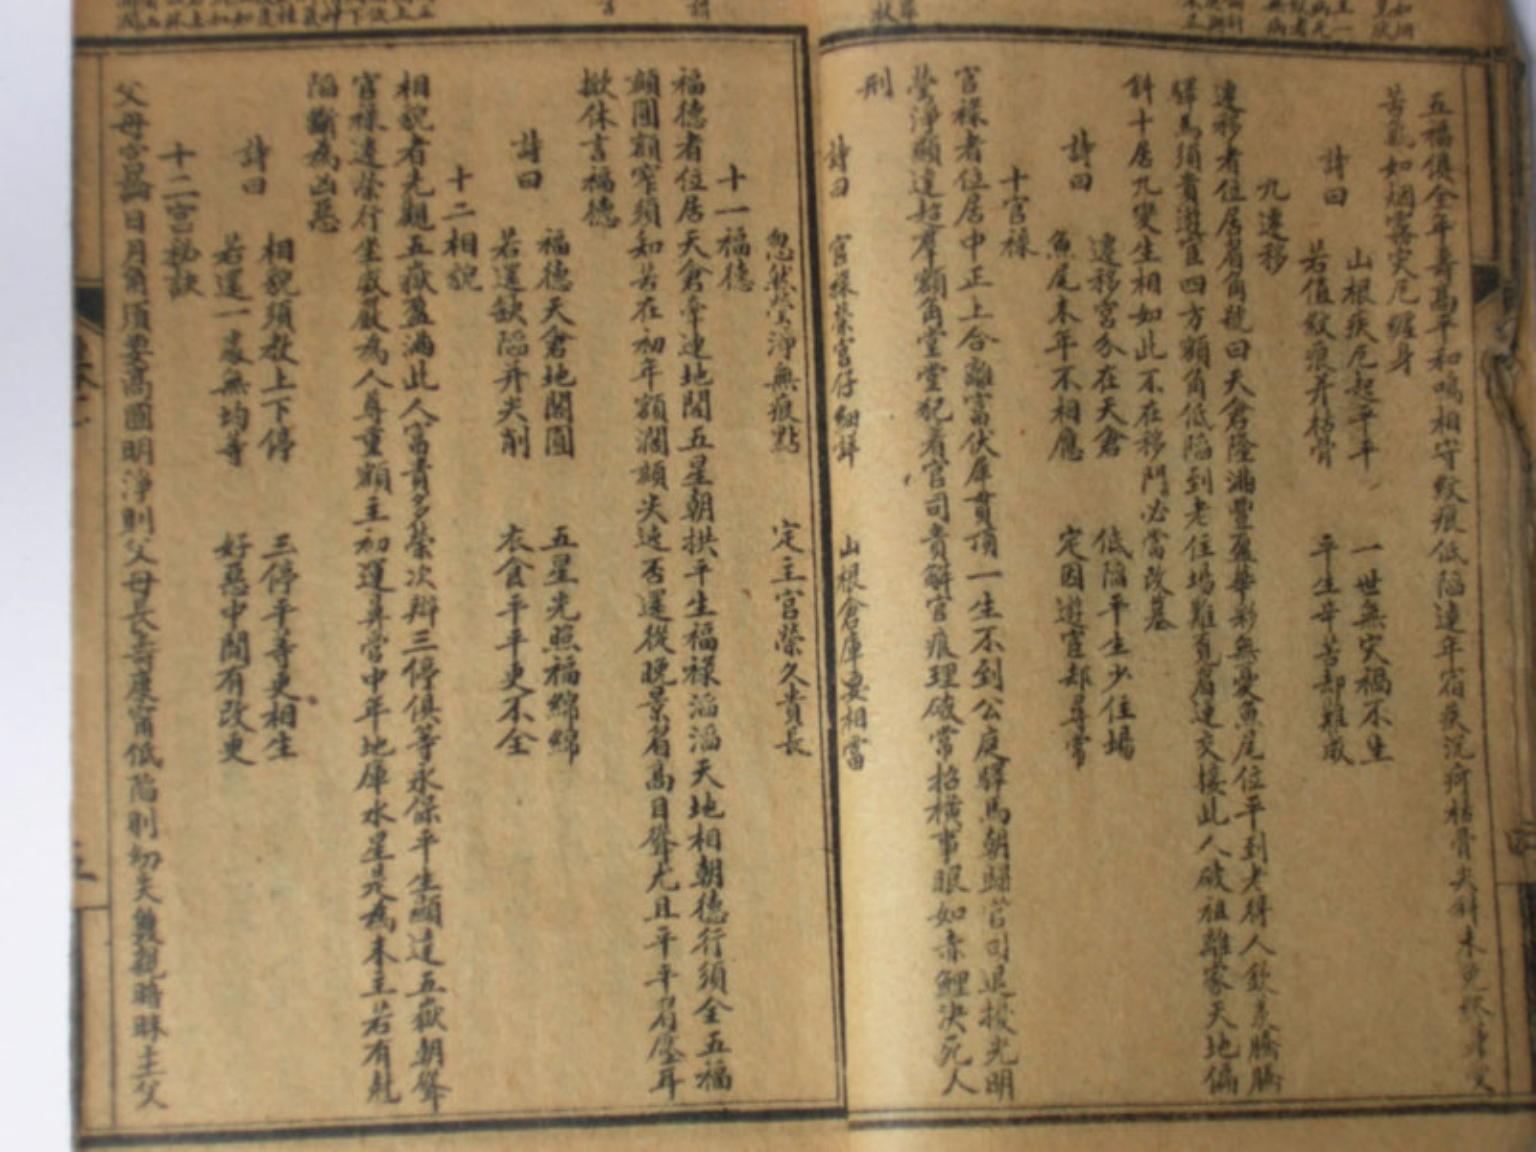 五福俱全年壽高平和鳴相守紋痕低陷連年宿疾沉疴枯骨尖斜未免終身受
苦氣如烟霧災厄纏身
詩曰
山根疾厄起平平 一世無災禍不生
若值紋痕并枯骨 平生辛苦却難成
九遷移
遷移者位居眉角號曰天倉隆滿豐盈華彩無憂魚尾位平到老得人欽羨騰騰
驛馬須貴遊宦四方額角低陷到老住場難覓眉連交接此人破祖離家天地偏
斜十居九變生相如此不在移門必當改基
詩曰
遷移宮分在天倉 低陷平生少住場
魚尾末年不相應 定因遊宦却尋常
十官祿
官祿者位居中正上合離宮伏犀貫頂一生不到公庭驛馬朝歸官司退擾光明
瑩淨顯達超羣額角堂堂犯着官司貴解宮痕理破常招橫事眼如赤鯉決死人
刑
詩曰 官祿榮宮仔細詳 山根倉庫要相當
忽然瑩淨無痕點 定主官榮久貴長
十一福德
福德者位居天倉牽連地閣五星朝拱平生福祿滔滔天地相朝德行須全五福
頦圓額窄須知苦在初年額濶頦尖迍否還從晚景眉高目聳尤且平平眉壓耳
掀休言福德
詩曰
福德天倉地閣圓 五星光照福綿綿
若還缺陷并尖削 衣食平平更不全
十二相貌
相貌者先觀五嶽盈滿此人富貴多榮次辯三停俱等永保平生顯達五嶽朝聳
官祿遷榮行坐威嚴為人尊重額主初運鼻管中年地庫水星是為末主若有剋
陷斷為凶惡
詩曰
相貌須教上下停 三停平等更相生
若還一處無均等 好惡中間有改更
十二宮秘訣
父母宮論日月角須要高圓明淨則父母長壽康甯低陷則幼失雙親暗昧主父